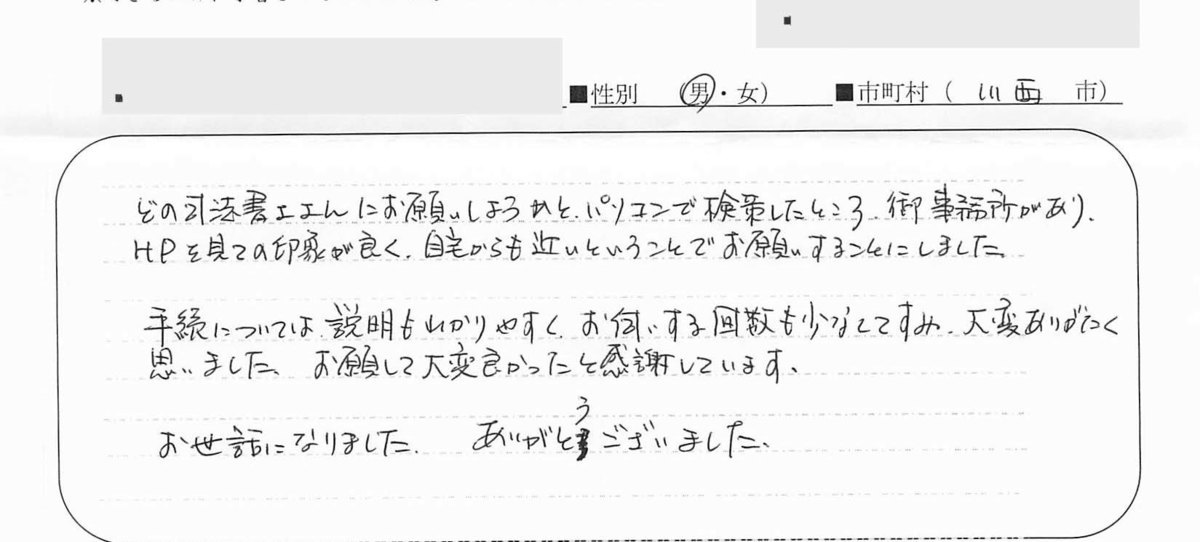 ■性別 (男・女) ■市町村 ( 川西 市)
どの司法書士さんにお願いしようかと、パソコンで検索したところ、御事務所があり、
HPを見ての印象が良く、自宅からも近いということでお願いすることにしました。
手続については、説明もわかりやすく、お伺いする回数も少なくてすみ、大変ありがたく
思いました。お願して大変良かったと感謝しています。
お世話になりました。 ありがとうございました。